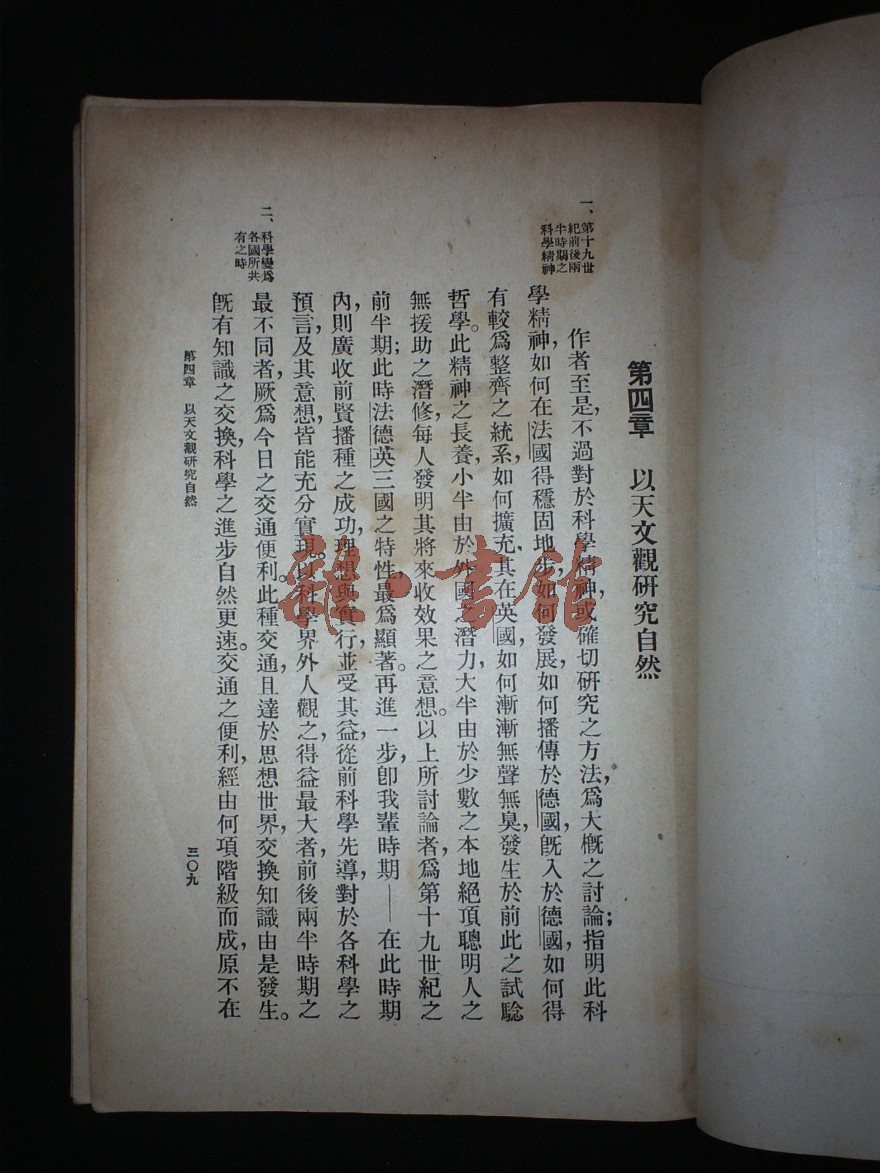 第四章 以天文觀研究自然
一、第十九世
紀前後兩
半時期之
科學精神
作者至是，不過對於科學精神，或確切研究之方法，爲大概之討論；指明此科
學精神，如何在法國得穩固地步，如何發展，如何播傳於德國，旣入於德國，如何得
有較爲整齊之統系，如何擴充其在英國，如何漸漸無聲無臭，發生於前此之試驗
哲學。此精神之長養，小半由於外國之潛力，大半由於少數之本地絕頂聰明人之
無援助之潛修，每人發明其將來收效果之意想。以上所討論者，爲第十九世紀之
前半期；此時法德英三國之特性，最爲顯著。再進一步，卽我輩時期——在此時期
內，則廣收前賢播種之成功，理想與實行，並受其益，從前科學先導，對於各科學之
預言，及其意想，皆能充分實現。以科學界外人觀之，得益最大者，前後兩半時期之
二、科學變爲
各國所共
有之時
最不同者，厥爲今日之交通便利。此種交通，且達於思想世界，交換知識由是發生。
旣有知識之交換，科學之進步自然更速。交通之便利，經由何項階級而成，原不在
第四章 以天文觀研究自然
三〇九
雜·書館